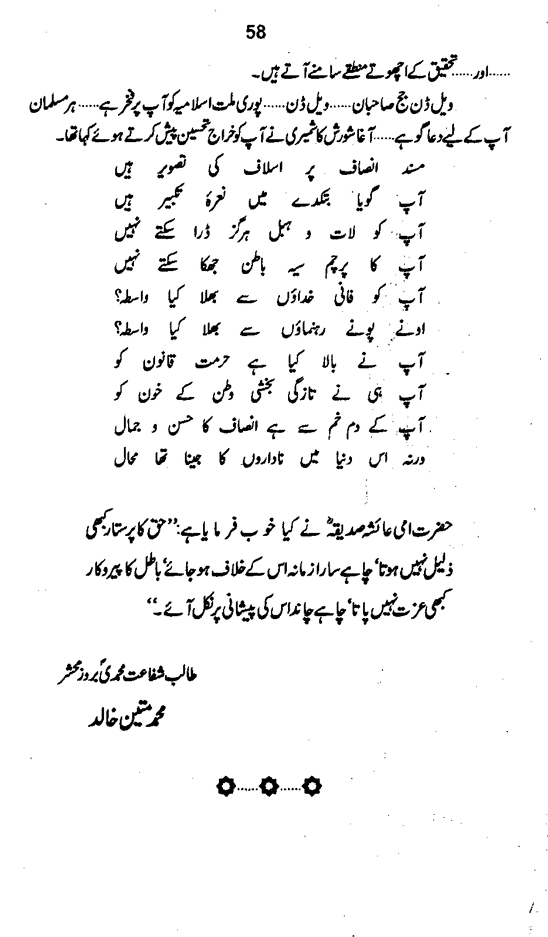 58
......اور......تحقیق کے اچھوتے منطقے سامنے آتے ہیں۔
ویل ڈن جج صاحبان......ویل ڈن......پوری ملت اسلامیہ کو آپ پر فخر ہے......ہر مسلمان
آپ کے لیے دعاگو ہے......آغا شورش کاشمیری نے آپ کو خراج تحسین پیش کرتے ہوئے کہا تھا۔
مسند انصاف پر اسلاف کی تصویر ہیں
آپ گویا بتکدے میں نعرۂ تکبیر ہیں
آپ کو لات و ہبل ہرگز ڈرا سکتے نہیں
آپ کا پرچم سیہ باطن جھکا سکتے نہیں
آپ کو فانی خداؤں سے بھلا کیا واسطہ؟
اونے پونے رہنماؤں سے بھلا کیا واسطہ؟
آپ نے بالا کیا ہے حرمت قانون کو
آپ ہی نے تازگی بخشی وطن کے خون کو
آپ کے دم خم سے ہے انصاف کا حسن و جمال
ورنہ اس دنیا میں ناداروں کا جینا تھا محال
حضرت امی عائشہ صدیقہؓ نے کیا خوب فرمایا ہے: ”حق کا پرستار کبھی
ذلیل نہیں ہوتا‘ چاہے سارا زمانہ اس کے خلاف ہو جائے‘ باطل کا پیروکار
کبھی عزت نہیں پاتا‘ چاہے چاند اس کی پیشانی پر نکل آئے۔“
طالب شفاعت محمدیؐ بروز محشر
محمد متین خالد